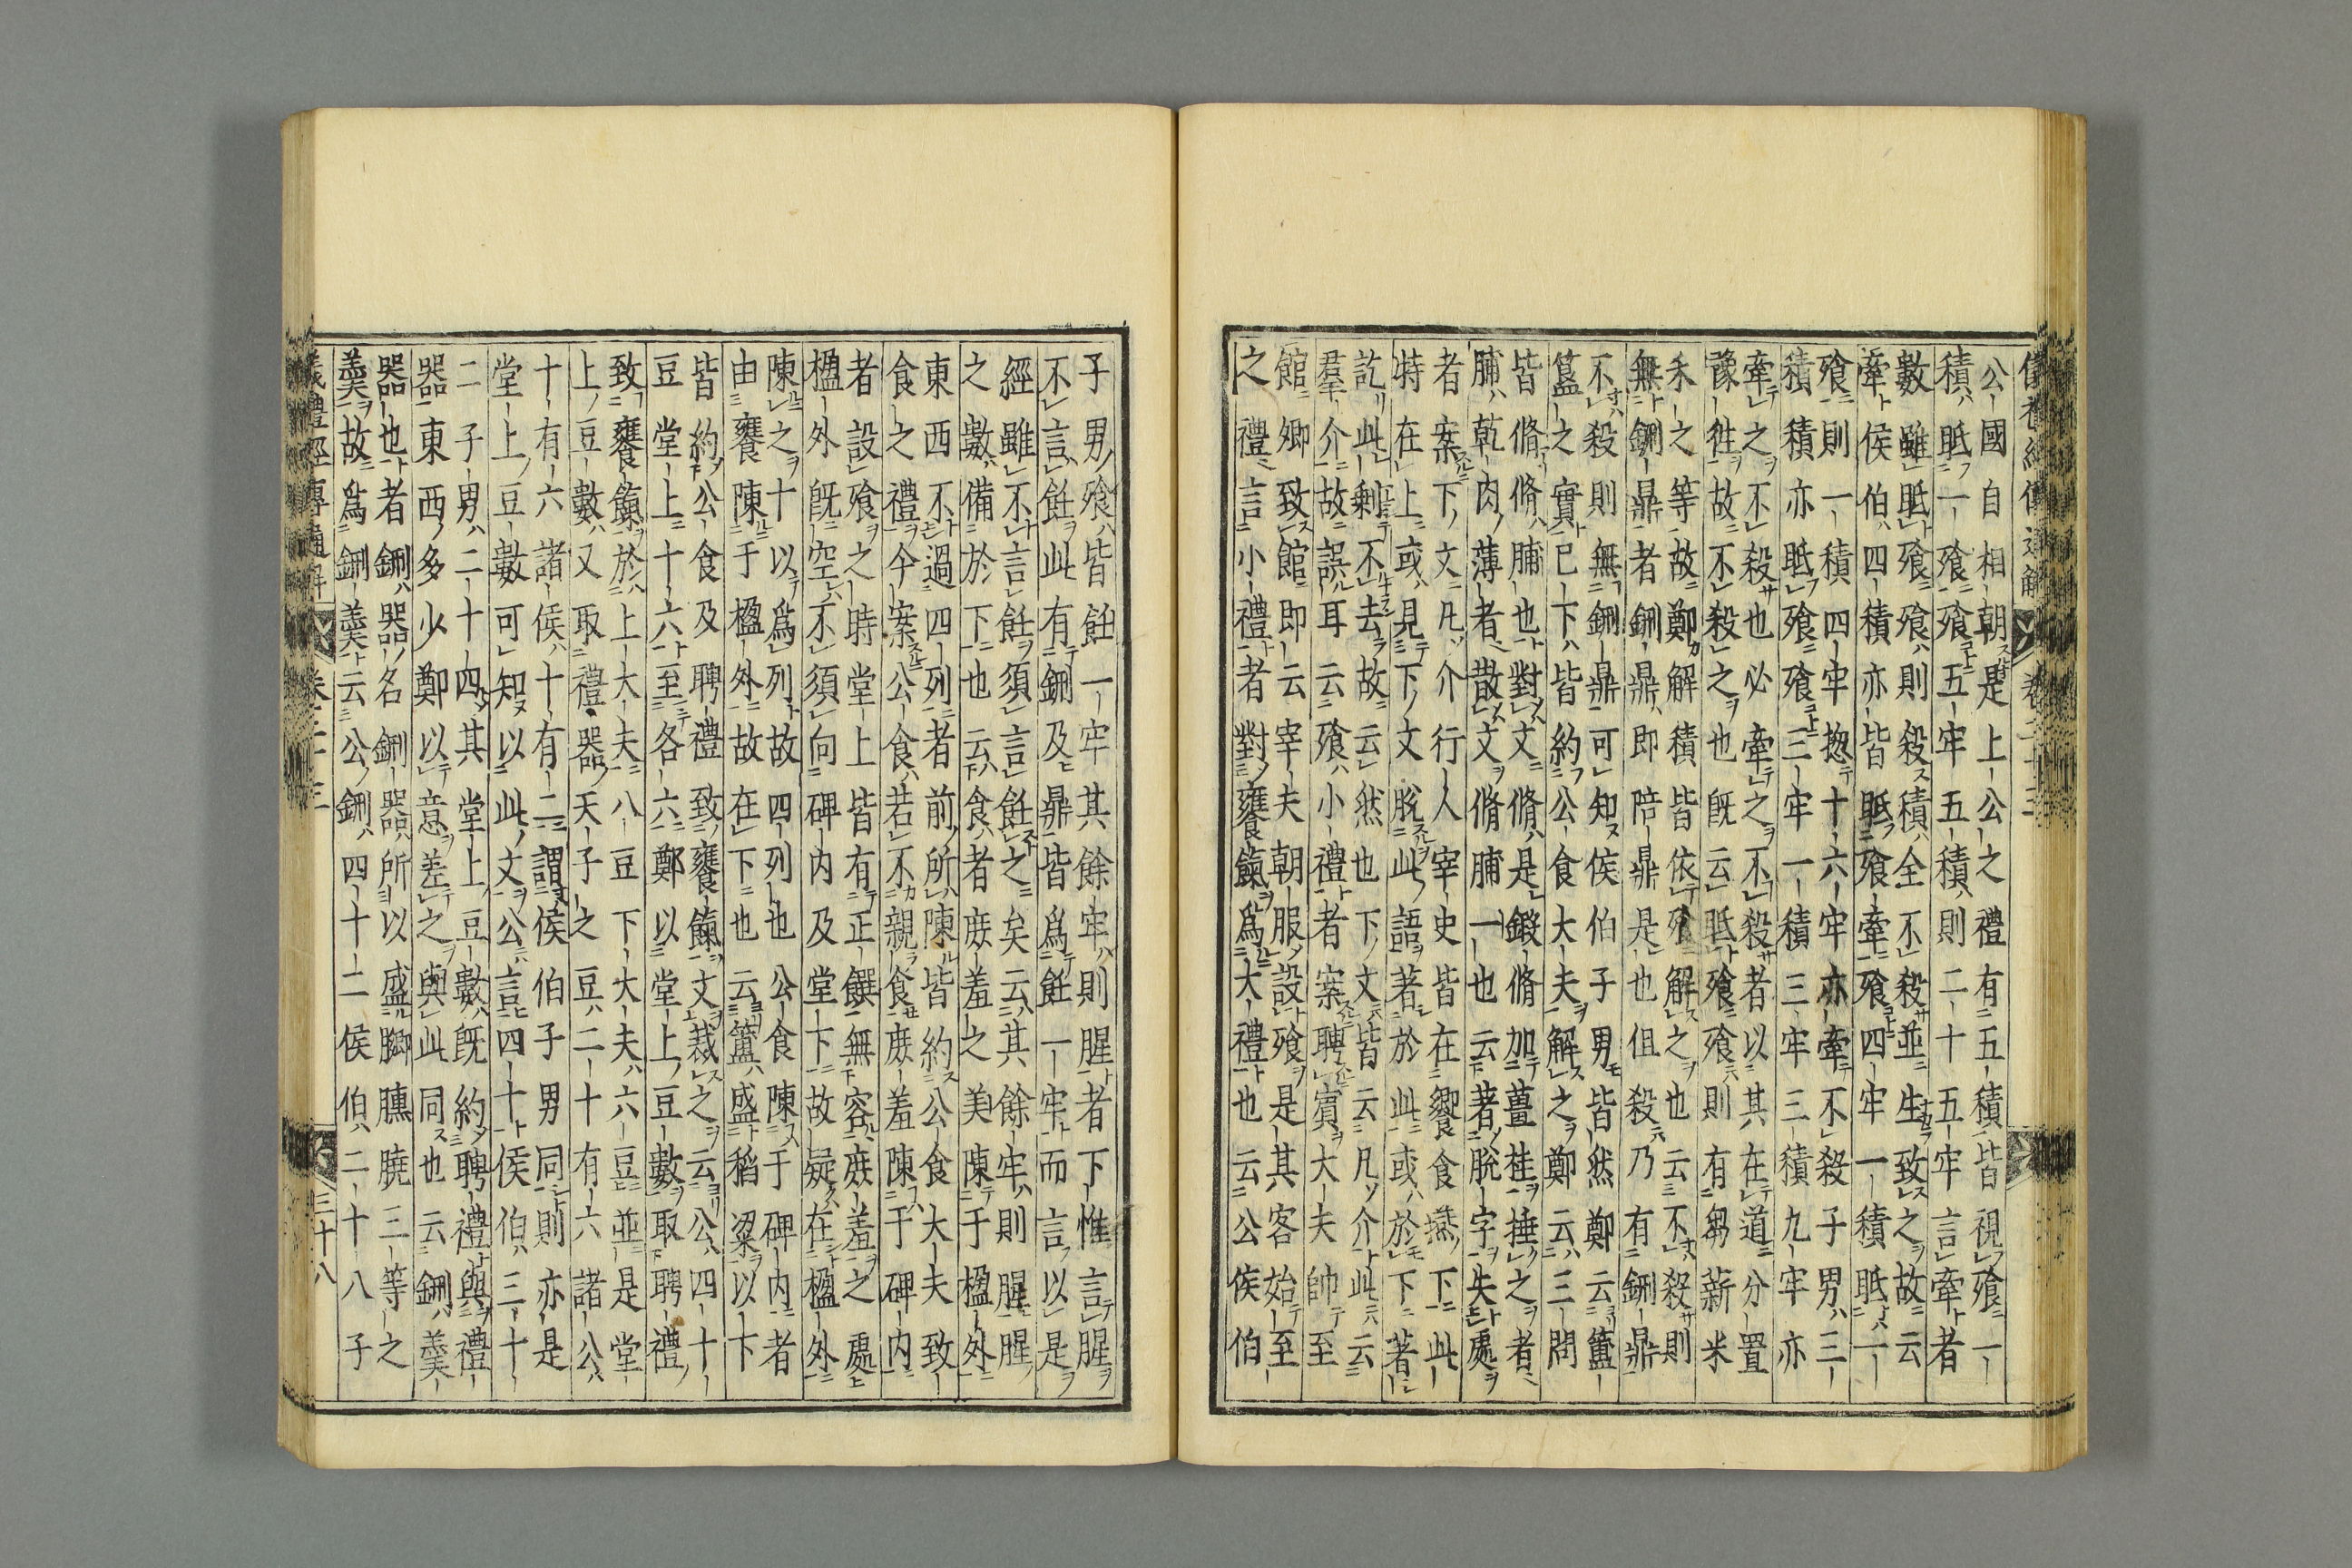 公國自相朝是上公之禮有五積皆視飱一
積眡一飱飱五牢五積則二十五牢言牽者
數雖眡飱飱則殺積全不殺並生致之故云
牽侯伯四積亦皆眡飱牽飱四牢一積眡一
飱則一積四牢揔十六牢亦牽不殺子男三
積積亦眡飱飱三牢一積三牢三積九牢亦
牽之不殺也必牽之不殺者以其在道分置
豫徃故不殺之也旣云眡飱飱則有芻薪米
禾之等故鄭解積皆依飱解之也云不殺則
無鉶鼎者鉶鼎即陪鼎是也但殺乃有鉶鼎
不殺則無鉶鼎可知侯伯子男皆然鄭云簠
簋之實已下皆約公食大夫解之鄭云三問
皆脩脩脯也對文脩是鍛脩加薑桂捶之者
脯乾肉薄者散文脩脯一也云著脫字失處
者案下文凡介行人宰史皆在饗食燕下此
特在上或見下文脫此語著於此或於下著
訖此剩不去故云然也下文皆云凡介此云
羣介故誤耳云飱小禮者案聘賓大夫帥至
館卿致館即云宰夫朝服設飱是其客始至
之禮言小禮者對饔餼爲大禮也云公侯伯
子男飱皆飪一牢其餘牢則腥者下惟言腥
不言飪此有鉶及鼎皆爲飪一牢而言以是
經雖不言飪須言飪之矣云其餘牢則腥腥
之數備於下也云食者庶羞之美陳于楹外
東西不過四列者前所陳皆約公食大夫致
食之禮今案公食若不親食庶羞陳于碑内
者設飱之時堂上皆有正饌無容庶羞之處
楹外旣空不須向碑内及堂下故疑在楹外
陳之十以爲列故四列也公食陳于碑内者
由饔陳于楹外故在下也云簠盛稻粱以下
皆約公食及聘禮致饔餼文裁之云公四十
豆堂上十六至各六鄭以堂上豆數取聘禮
致饔餼於上大夫八豆下大夫六豆並是堂
上豆數又取禮器天子之豆二十有六諸公
十有六諸侯十有二謂侯伯子男同則亦是
堂上豆數可知以此文公言四十侯伯三十
二子男二十四其堂上豆數旣約聘禮與禮
器東西多少鄭以意差之與此同也云鉶羹
器也者鉶器名鉶器所以盛膷臐膮三等之
羹故爲鉶羹云公鉶四十二侯伯二十八子
三十八